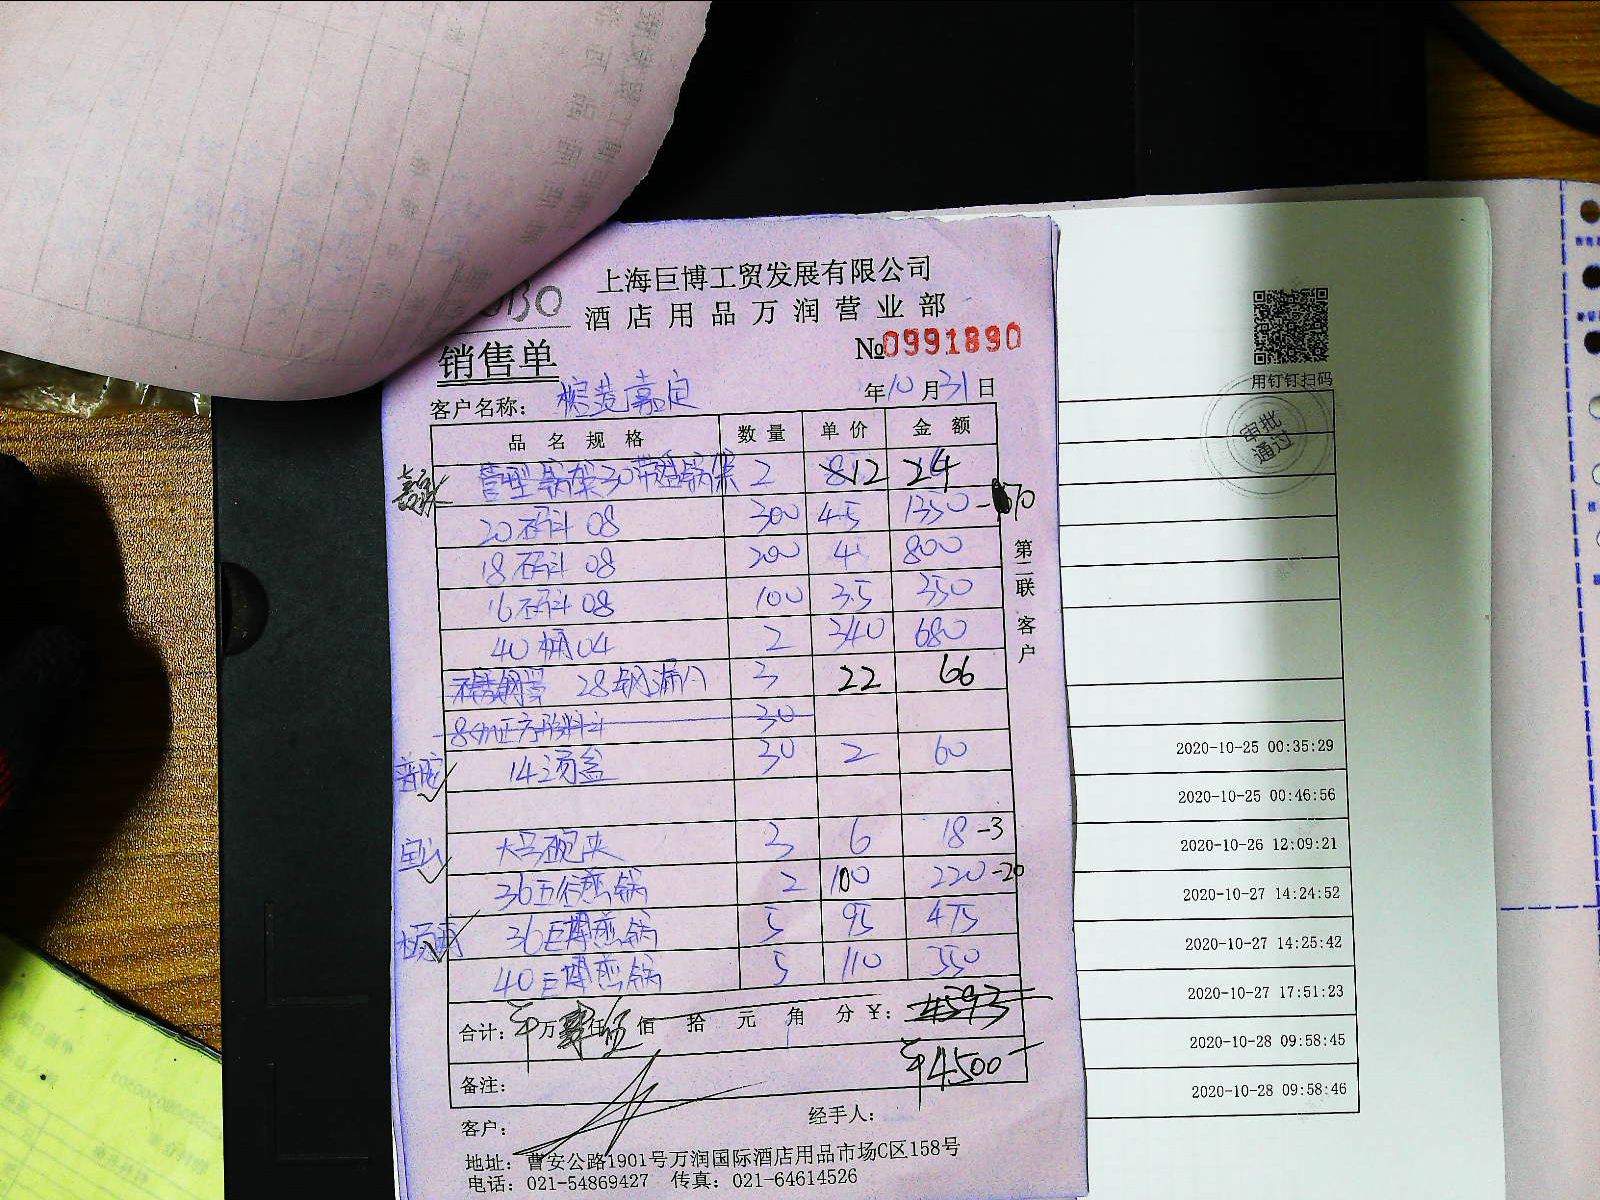 上海巨博工贸发展有限公司
酒店用品万润营业部
销售单 №0991890
客户名称： 嘉定 年10月31日
品名规格 数量 单价 金额
2 812 24
20码斗 08 300 4.5 1350
18码斗 08 200 4 800
16码斗 08 100 3.5 350
40桶04 2 340 680
28钢漏 3 22 66
30
普陀 14汤盆 30 2 60
宝山 大号砚夹 3 6 18 -3
36五行煎锅 2 100 220 -20
36巨博煎锅 5 95 475
40巨博煎锅 5 110 550
合计： 万 仟 伍 佰 拾 元 角 分 ¥： 4593
备注： ¥4500
客户： 经手人：
地址：曹安公路1901号万润国际酒店用品市场C区158号
电话：021-54869427 传真：021-64614526
第二联 客户
用钉钉扫码
审批通过
2020-10-25 00:35:29
2020-10-25 00:46:56
2020-10-26 12:09:21
2020-10-27 14:24:52
2020-10-27 14:25:42
2020-10-27 17:51:23
2020-10-28 09:58:45
2020-10-28 09:58:46